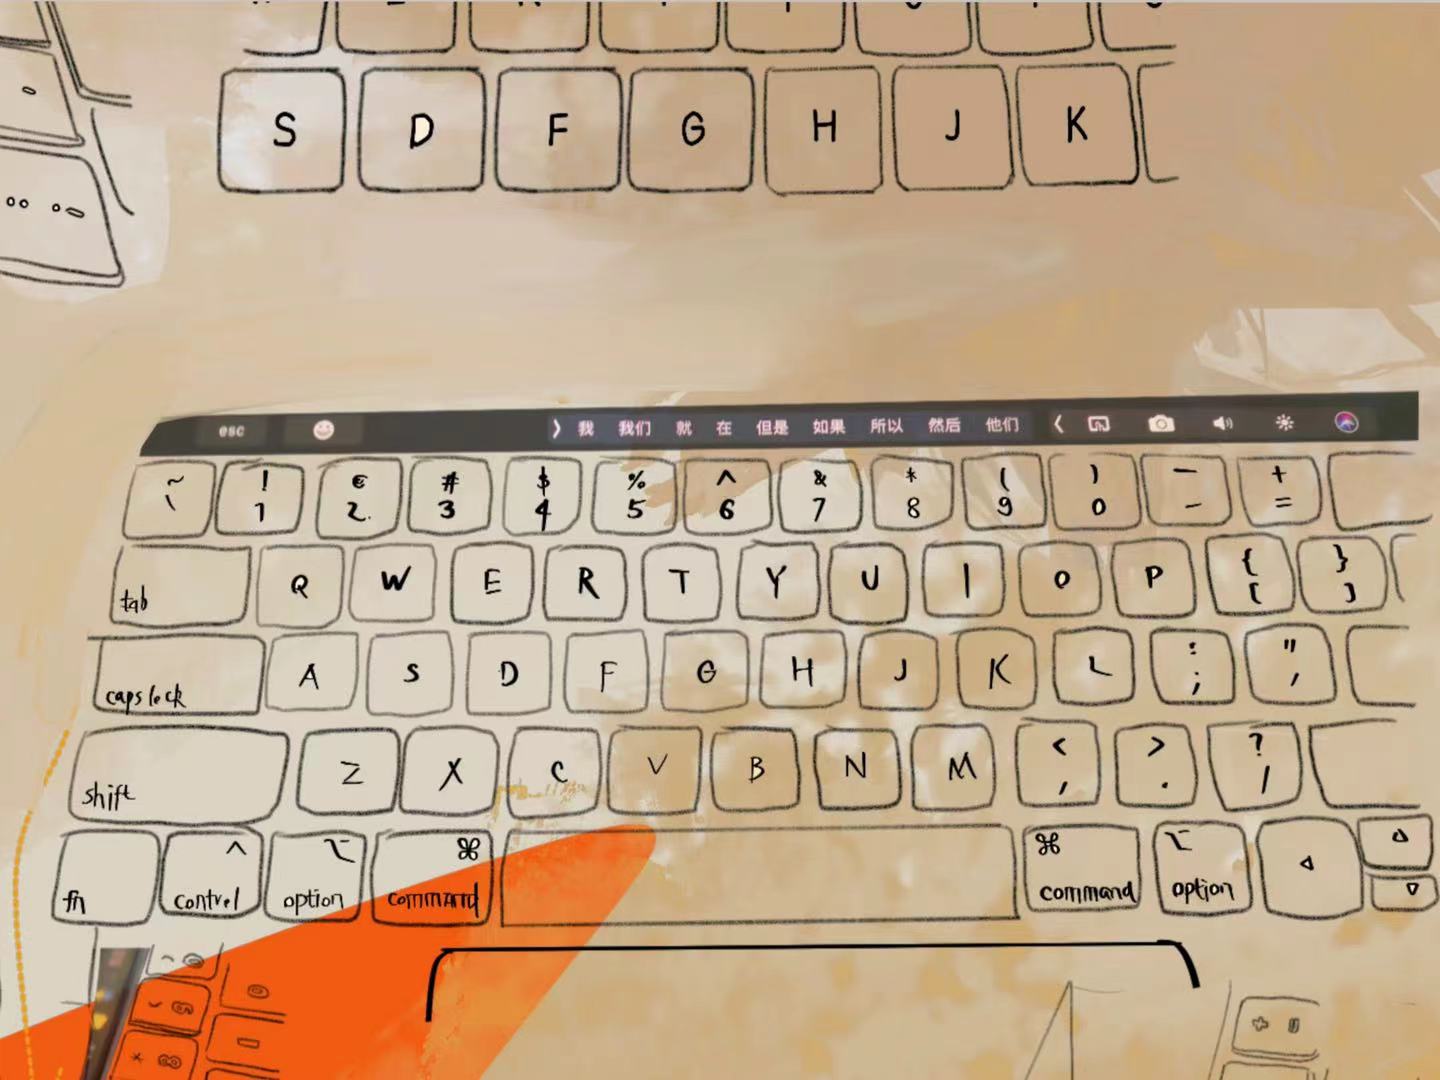 S D F G H J K
esc 我 我们 就 在 但是 如果 所以 然后 他们
~ ! € # $ % ^ & * ( ) — +
` 1 2 3 4 5 6 7 8 9 0 - =
Q W E R T Y U I O P { }
tab [ ]
A S D F G H J K L : "
caps lock ; '
Z X C V B N M < > ?
shift , . /
^ ⌥ ⌘ ⌘ ⌥
fn control option command command option